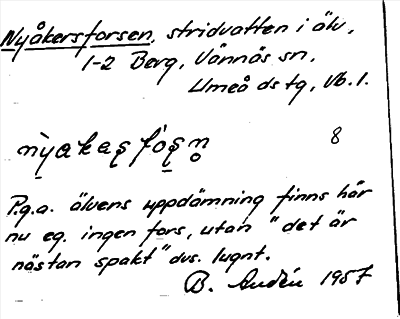 Nyåkersforsen, stridvatten i älv,
1-2 Berg, Vännäs sn,
Umeå ds tg, Vb. l.
nyakas̨ fos̨n̥ 8
P.g.a. älvens uppdämning finns här
nu eg. ingen fors, utan "det är
nästan spakt" dvs. lugnt.
B. Audén 1957